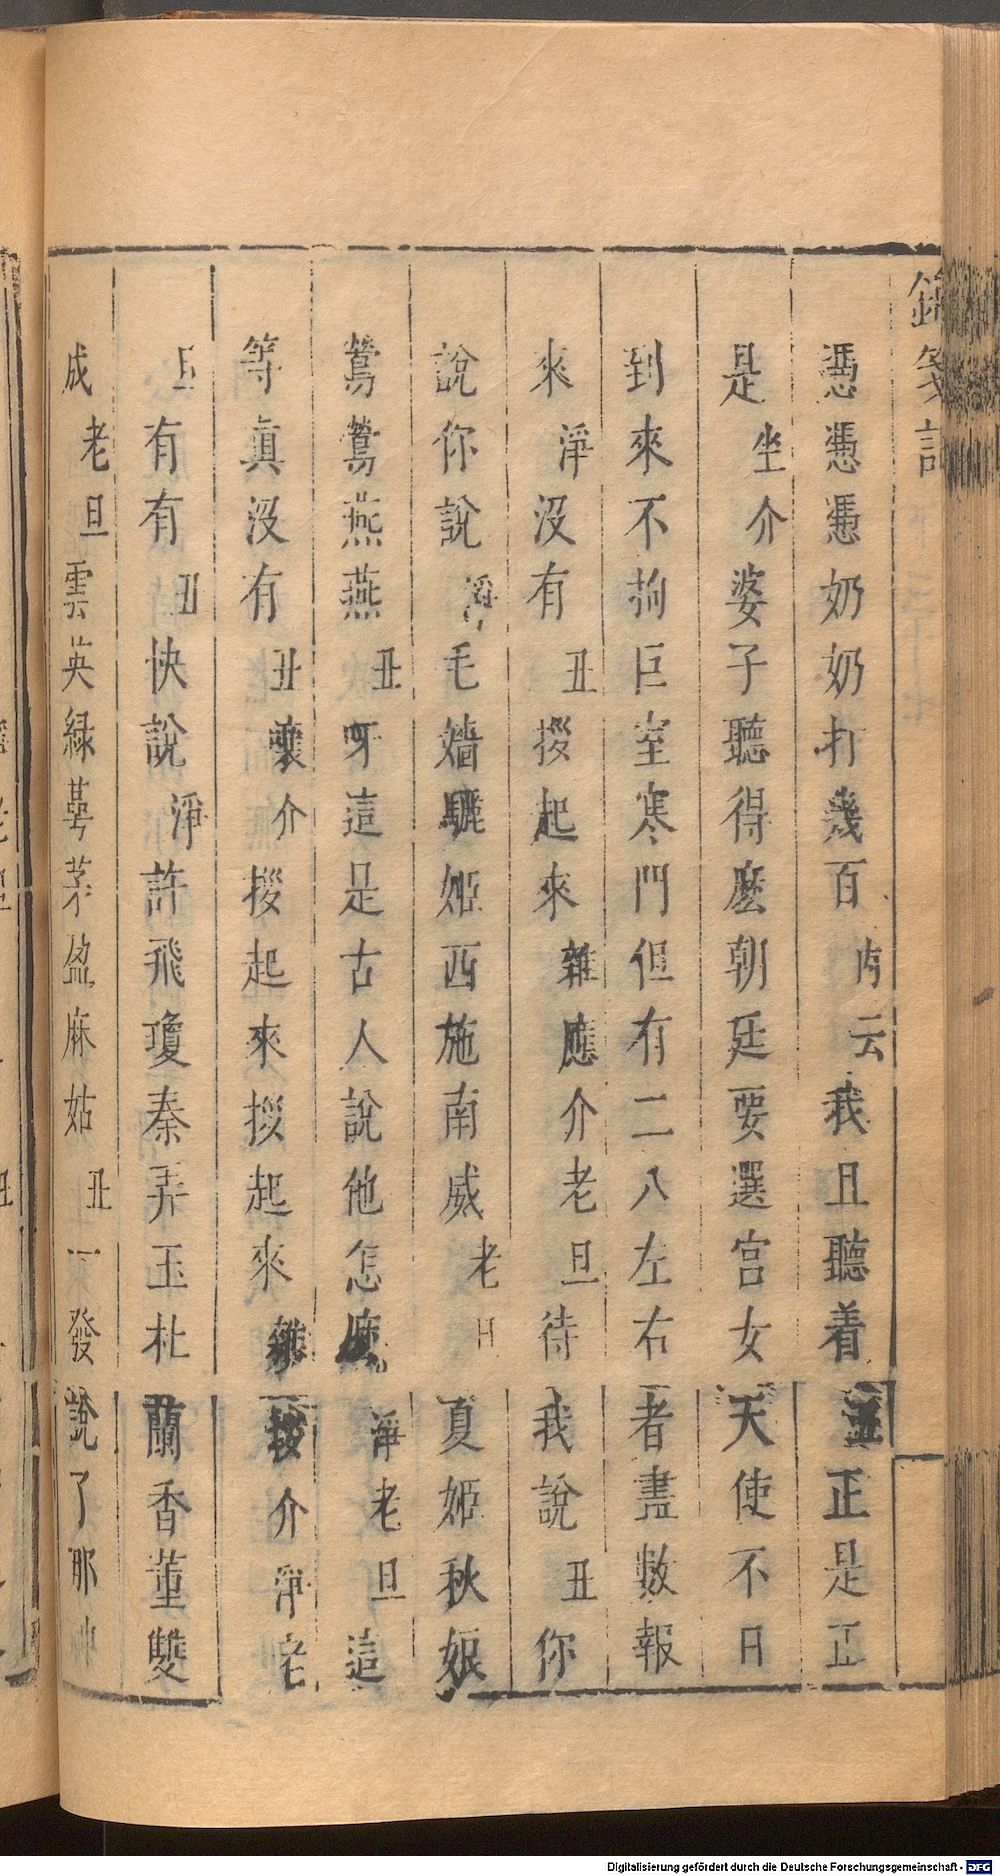 錦箋記
憑憑憑奶奶打幾百內云我且聽着丑正是正
是坐介婆子聽得麽朝廷要選宮女天使不日
到來不拘巨室寒門但有二八左右者盡數報
來淨沒有丑拶起來雜應介老旦待我說丑你
說你說淨毛嬙驪姬西施南威老旦夏姬秋娘
鶯鶯燕燕丑呀這是古人說他怎麽淨老旦這
等真沒有丑嚷介拶起來拶起來雜拶介淨老
旦有有丑快說淨許飛瓊秦弄玉杜蘭香董雙
成老旦雲英綠萼茅盈麻姑丑一發說了那
Digitalisierung gefördert durch die Deutsche Forschungsgemeinschaft - DFG